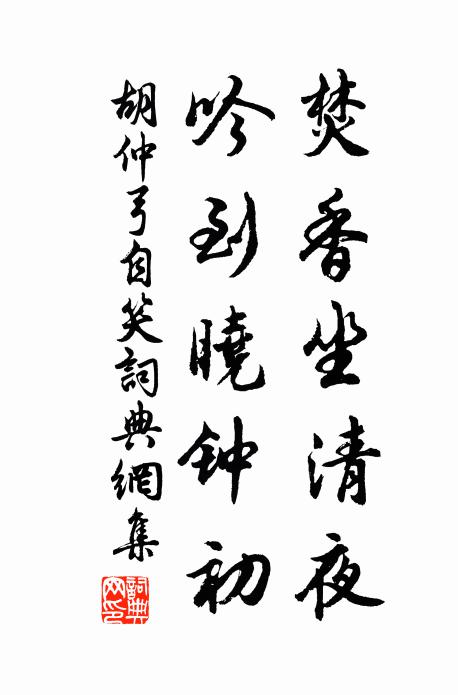 焚香坐清夜
吟到曉钟初
胡仲弓自笑詞典網集
詞典網印